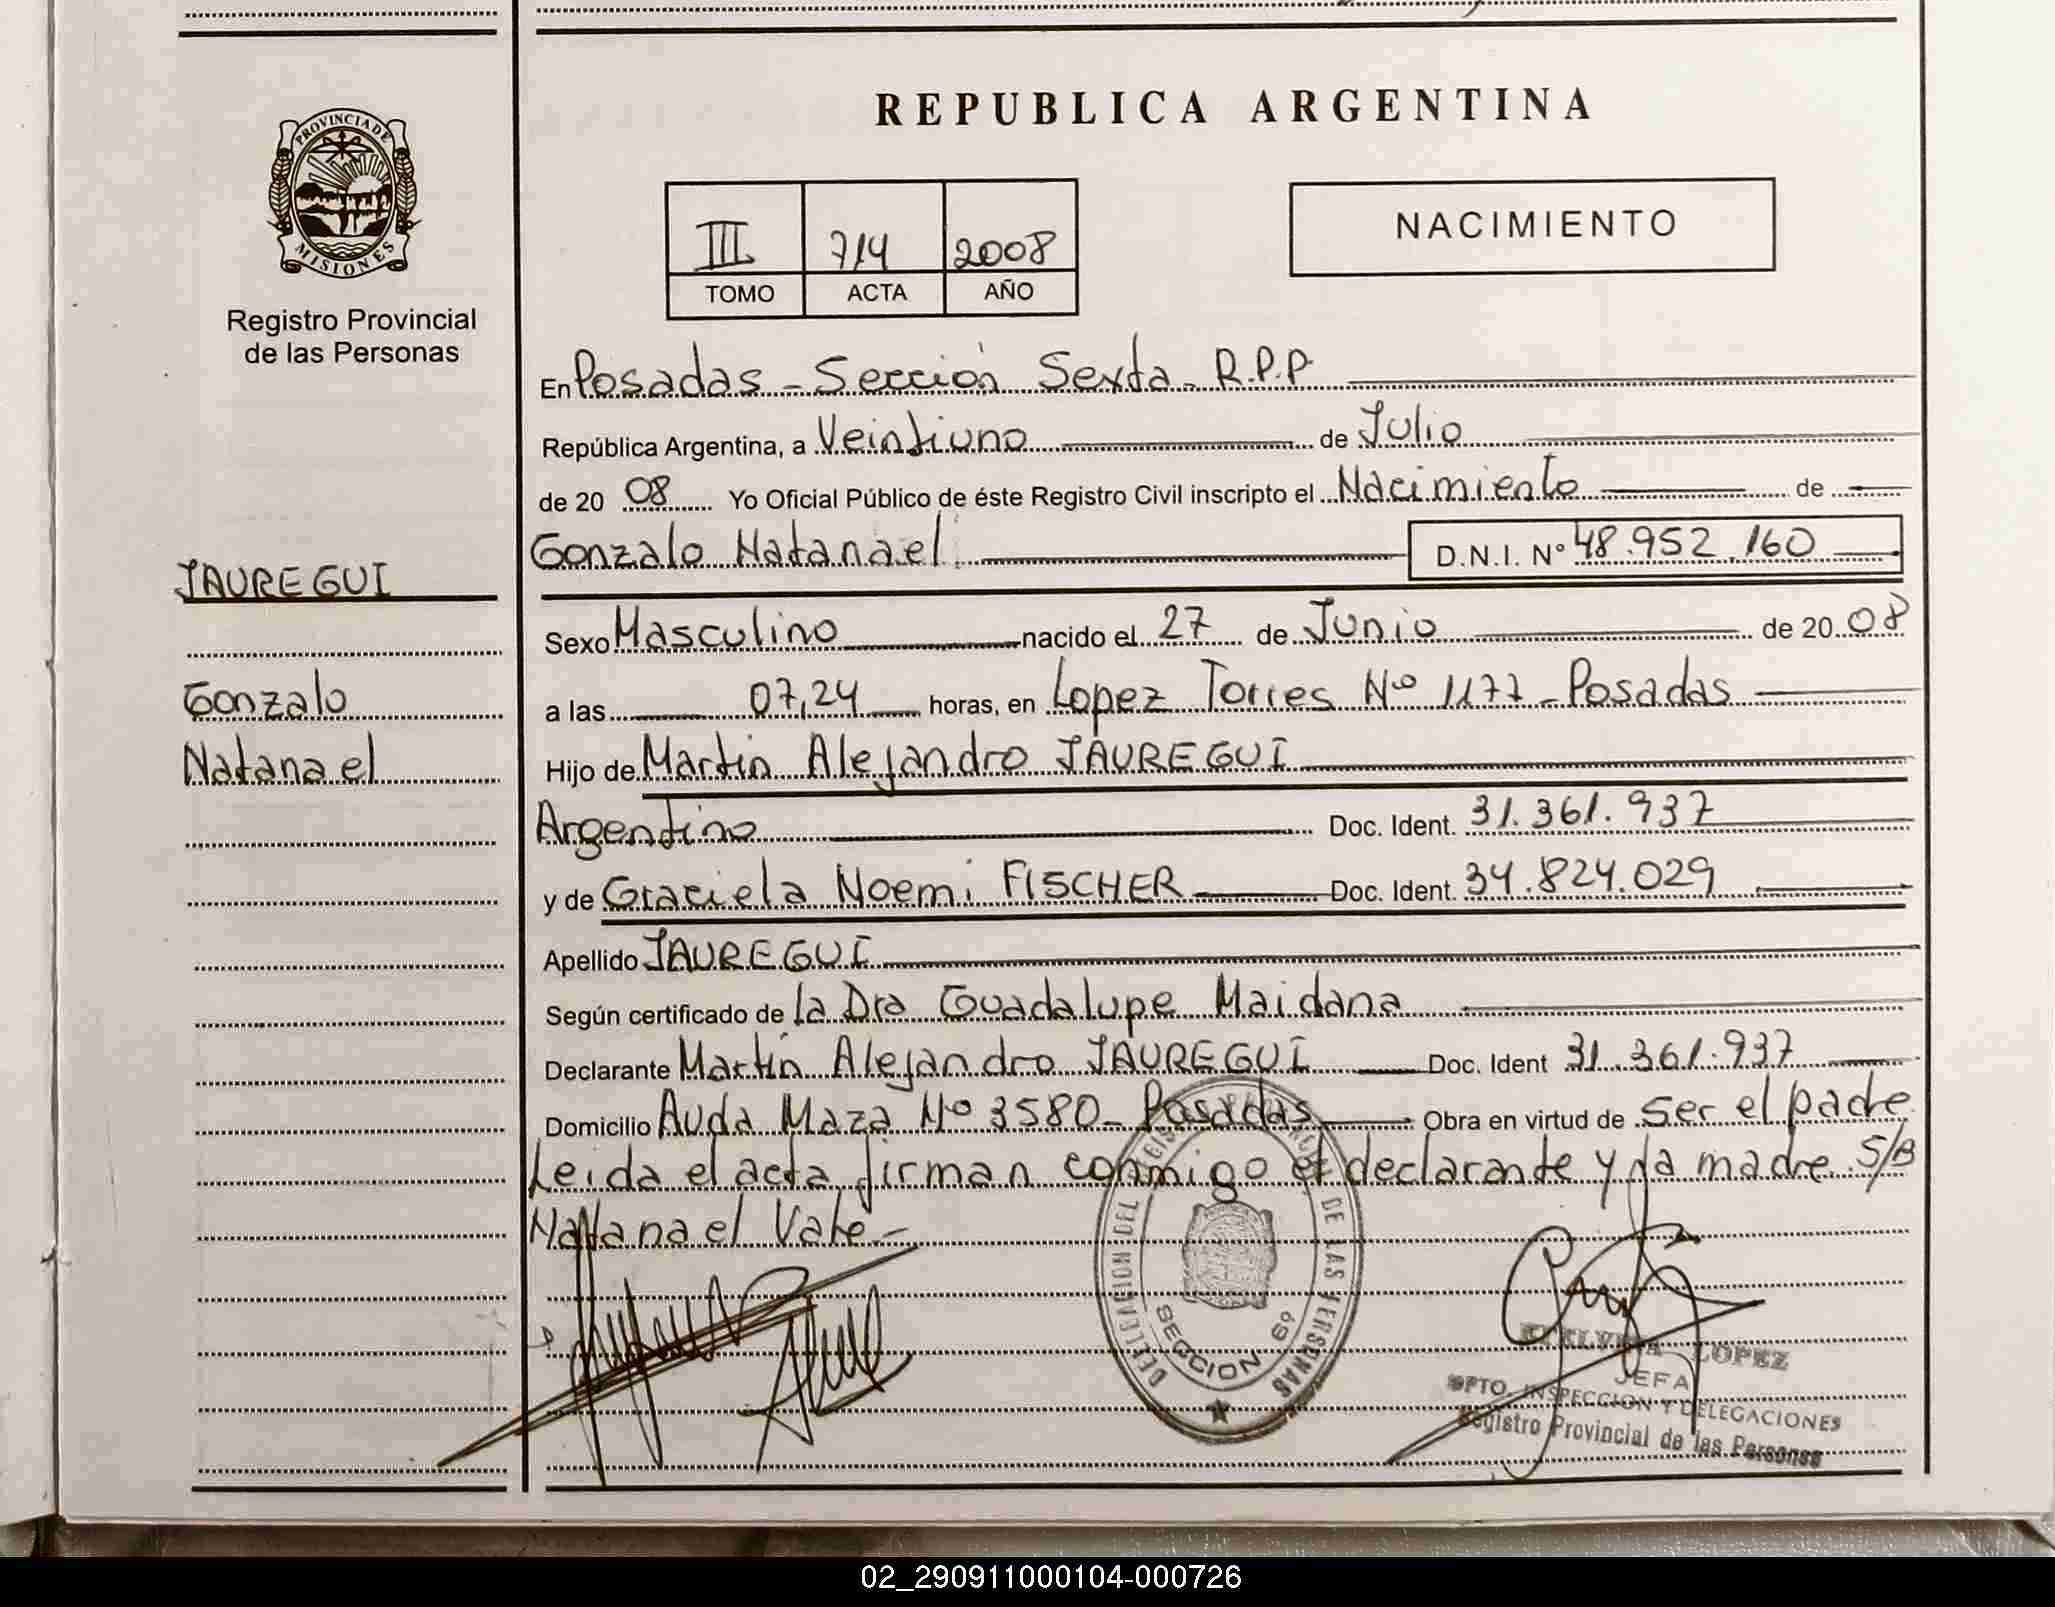 PROVINCIA DE
MISIONES
Registro Provincial
de las Personas
JAUREGUI
Gonzalo
Natanael
REPUBLICA ARGENTINA
III 714 2008
TOMO ACTA AÑO
NACIMIENTO
En Posadas - Sección Sexta - R.P.P
República Argentina, a Veintiuno de Julio
de 20 08 Yo Oficial Público de éste Registro Civil inscripto el Nacimiento de
Gonzalo Natanael D.N.I. Nº 48.952.160
Sexo Masculino nacido el 27 de Junio de 20 08
a las 07,24 horas, en Lopez Torres Nº 1177 - Posadas
Hijo de Martin Alejandro JAUREGUI
Argentino Doc. Ident. 31.361.937
y de Graciela Noemi FISCHER Doc. Ident. 34.824.029
Apellido JAUREGUI
Según certificado de la Dra Guadalupe Maidana
Declarante Martin Alejandro JAUREGUI Doc. Ident 31.361.937
Domicilio Avda Maza Nº 3580 - Posadas Obra en virtud de ser el padre
Leida el acta firman conmigo el declarante y la madre S/B
Natanael Vale -
DELEGACION DEL REGISTRO PROVINCIAL DE LAS PERSONAS
SECCION 6º
LOPEZ
JEFA
DPTO. INSPECCION Y DELEGACIONES
Registro Provincial de las Personas
02_290911000104-000726